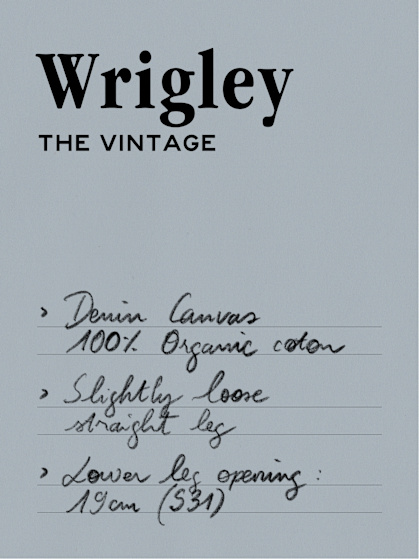 Wrigley
THE VINTAGE
> Denim Canvas
100% Organic coton
> Slightly loose
straight leg
> Lower leg opening :
19cm (S31)